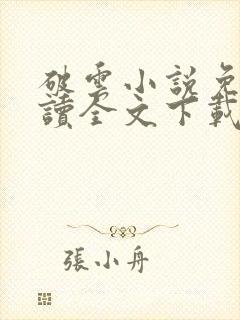 破雲小說免
讀全文下載
張小舟